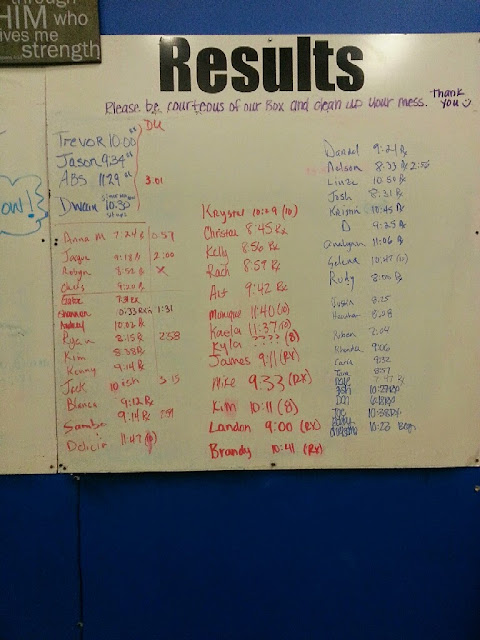 through
HIM who
ives me
strength
Results
Please be courteous of our Box and clean up your mess. Thank you
ow!
DU
Trevor 10:00
Jason 9:34
ABS 11:29
3:01
Dwain 10:30
Anna M 7:24 0:57
Jaque 9:18 2:00
Robyn 8:52 X
Chris 9:20 Rx
Gabe
Shannon 1:31
Audrey 10:02 Rx
Ryan 8:15 Rx 2:58
Kim 8:38 Rx
Kenny 9:14 Rx
Jack 10ish 3:15
Blanca 9:12 Rx
Samba 9:14 Rx
Delicia 11:47
Krystal 10:29 (10)
Christa 8:45 Rx
Kelly 8:56 Rx
Rach 8:59 Rx
Art 9:42 Rx
Monique 11:40 (10)
Kaela 11:37 (10)
Kyla ???? (8)
James 9:11 (RX)
Mike 9:33 (RX)
Kim 10:11 (8)
Landon 9:00 (RX)
Brandy 10:41 (RX)
Daniel 9:21 Rx
Nelson 8:33 Rx 2:56
Linze 10:50 Rx
Josh 8:31 Rx
Kristin 10:45 Rx
D 9:35 Rx
Analynn 11:06 Rx
Selena 10:47 (10)
Rudy 8:00 Rx
Justin 8:25
8:08
Ruben 7:04
9:06
9:32
Tara 8:57
7:47
Josh 10:27 Rx
Dan
Joe 10:38 Rx
10:23